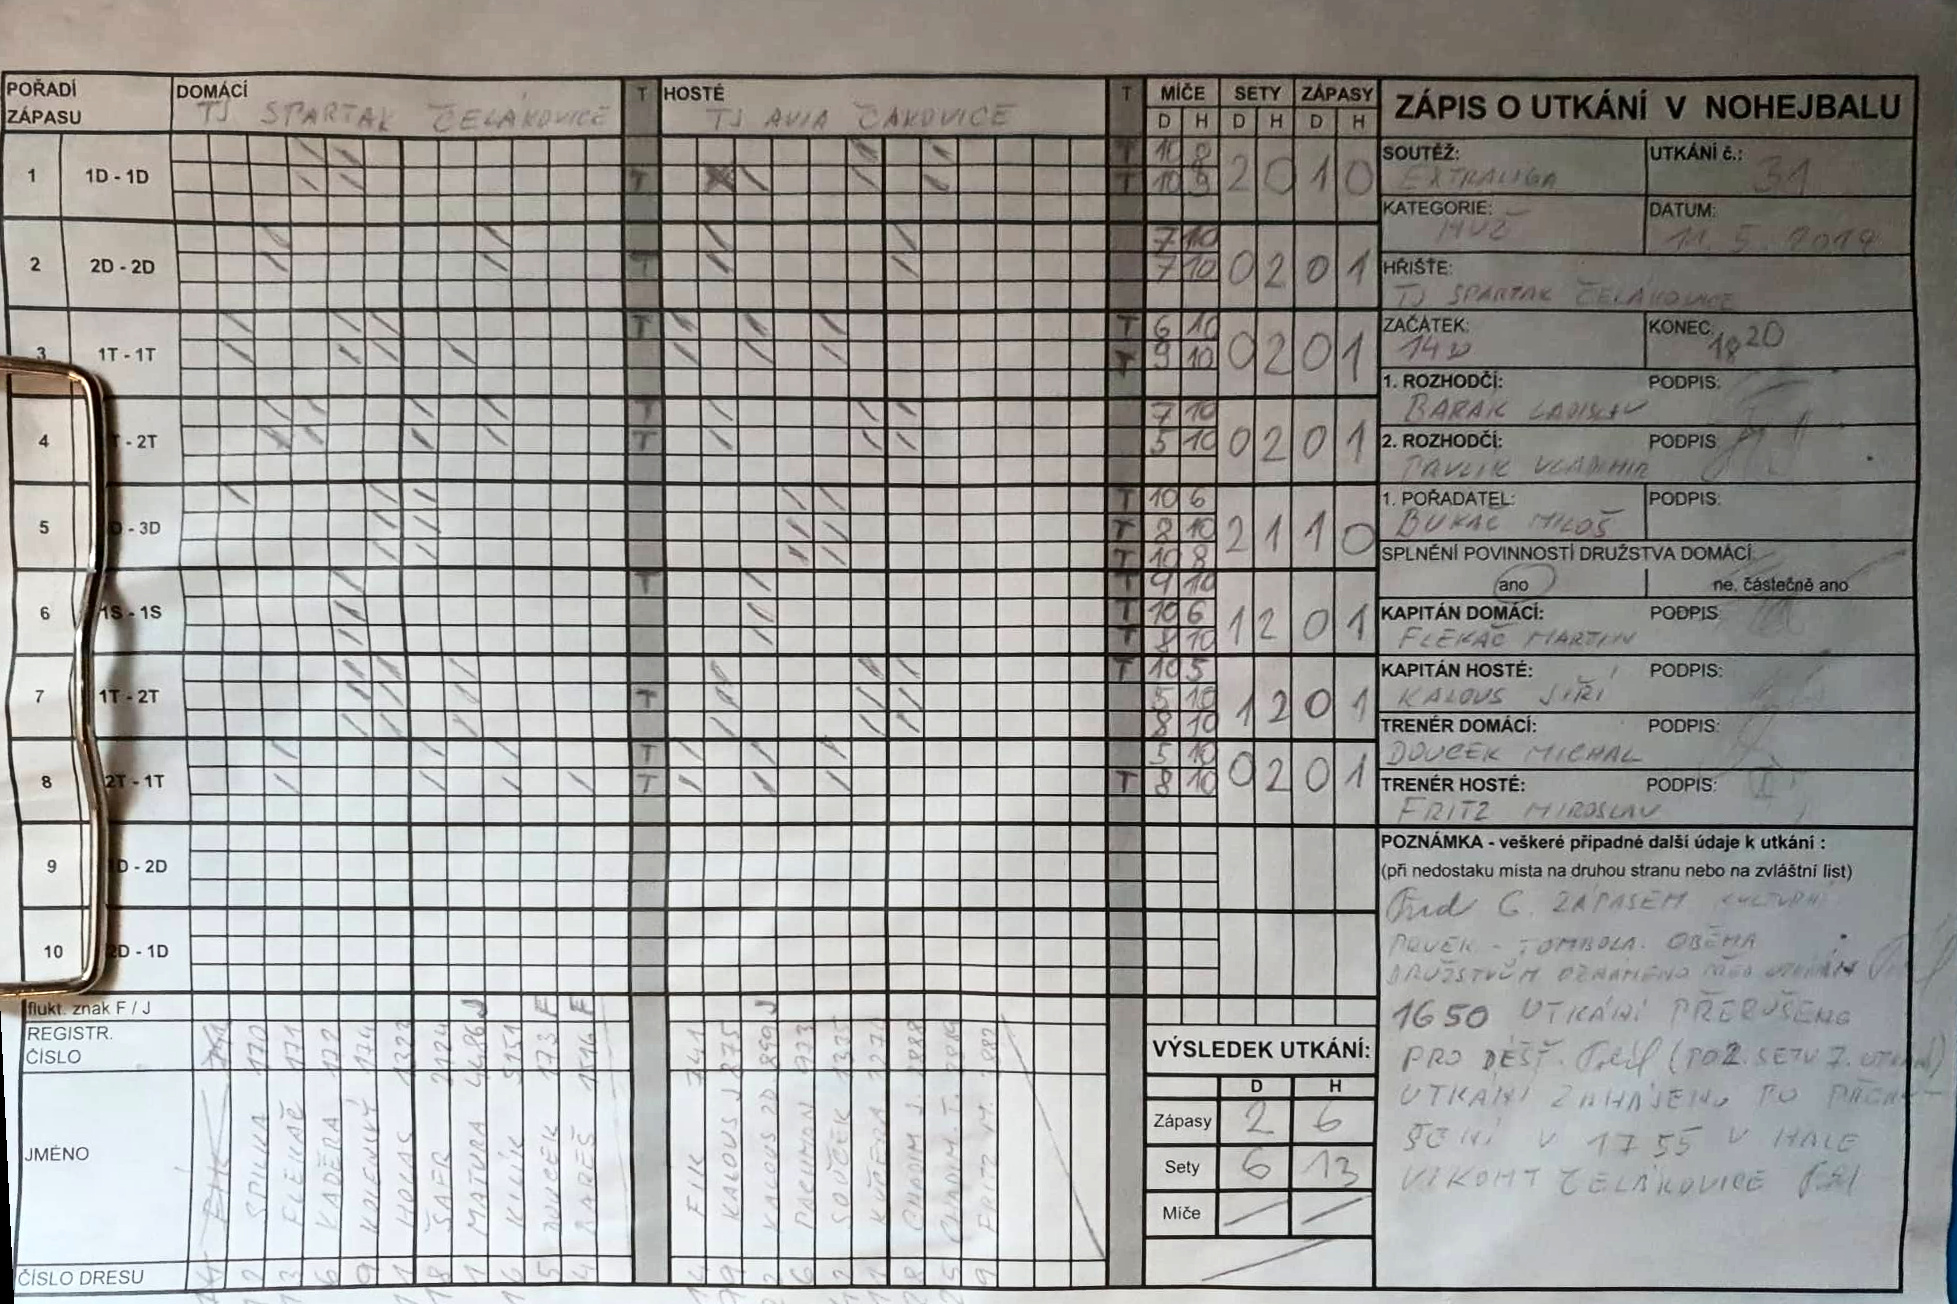 POŘADÍ ZÁPASU
DOMÁCÍ
TJ SPARTAK ČELÁKOVICE
T
HOSTÉ
TJ AVIA ČAKOVICE
T
MÍČE SETY ZÁPASY
D H D H D H
1 1D - 1D T T T 10 8 10 9 2 0 1 0
2 2D - 2D T 7 10 7 10 0 2 0 1
3 1T - 1T T T T 6 10 9 10 0 2 0 1
4 - 2T T T 7 10 5 10 0 2 0 1
5 - 3D T T T 10 6 8 10 10 8 2 1 1 0
6 1S - 1S T T T T 9 10 10 6 8 10 1 2 0 1
7 1T - 2T T T 10 5 5 10 8 10 1 2 0 1
8 2T - 1T T T T 5 10 8 10 0 2 0 1
9 D - 2D
10 2D - 1D
flukt. znak F / J
J F F J
REGISTR. ČÍSLO
170 171 172 174 1323 2124 4486 5151 173 1516
741 875 899 923 1335
JMÉNO
FLEKAČ KADĚRA KOLENSKÝ HOLAS ŠAFR MATURA KILÍK DOUCEK BAREŠ
FIK KALOUS J KALOUS ZD. PACHMAN SOUČEK KUČERA CHADIM J. CHADIM T. FRITZ M.
ČÍSLO DRESU
ZÁPIS O UTKÁNÍ V NOHEJBALU
SOUTĚŽ: EXTRALIGA
UTKÁNÍ č.: 31
KATEGORIE: MUŽI
DATUM: 11. 5. 2019
HŘIŠTĚ: TJ SPARTAK ČELÁKOVICE
ZAČÁTEK:
KONEC: 18 20
1. ROZHODČÍ: PODPIS:
BARÁK LADISLAV
2. ROZHODČÍ: PODPIS
PAVLÍK VLADIMÍR
1. POŘADATEL: PODPIS:
BUKAČ MILOŠ
SPLNĚNÍ POVINNOSTÍ DRUŽSTVA DOMÁCÍ:
ano ne, částečně ano
KAPITÁN DOMÁCÍ: PODPIS
FLEKAČ MARTIN
KAPITÁN HOSTÉ: PODPIS:
KALOUS JIŘÍ
TRENÉR DOMÁCÍ: PODPIS:
DOUCEK MICHAL
TRENÉR HOSTÉ: PODPIS:
FRITZ MIROSLAV
POZNÁMKA - veškeré případné další údaje k utkání :
(při nedostaku místa na druhou stranu nebo na zvláštní list)
6. ZÁPASEM KULTURNÍ
PRVEK - TOMBOLA. OBĚMA
DRUŽSTVŮM OZNÁMENO PŘED UTKÁNÍM
1650 UTKÁNÍ PŘERUŠENO
PRO DÉŠŤ. (PO 2. SETU 7. UTKÁNÍ)
UTKÁNÍ ZAHÁJENO PO
V 1755 V HALE
VIKOMT ČELÁKOVICE
VÝSLEDEK UTKÁNÍ:
D H
Zápasy 2 6
Sety 6 13
Míče